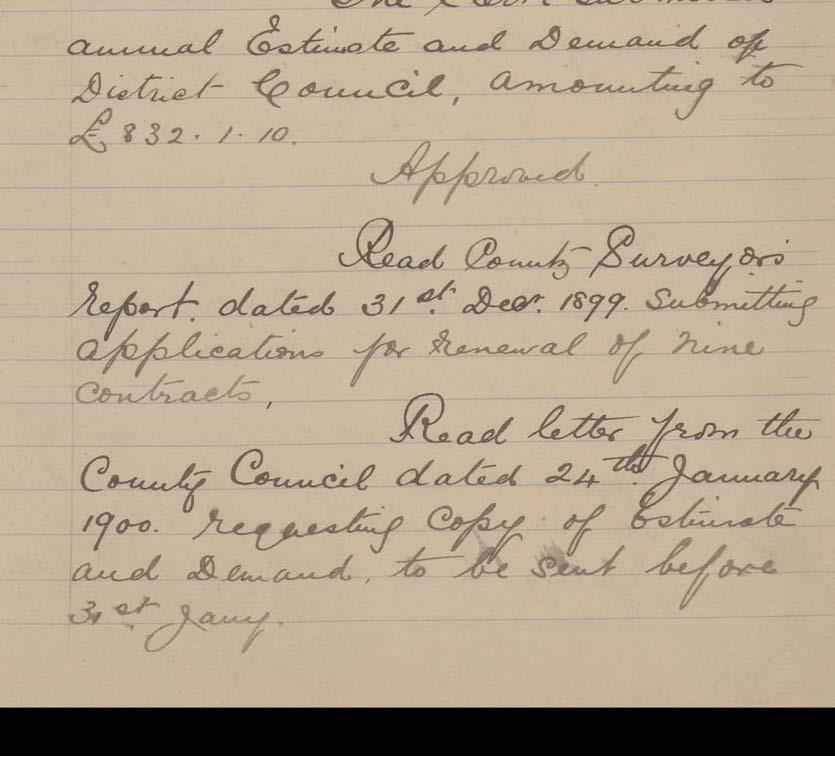 The Clerk submitted
annual Estimate and Demand of
District Council, amounting to
£832.1.10.
Approved.
Read County Surveyors
report. dated 31st. Decr. 1899. submitting
applications for renewal of nine
contracts,
Read letter from the
County Council dated 24th. January
1900. requesting copy of Estimate
and Demand, to be sent before
31st Jany.